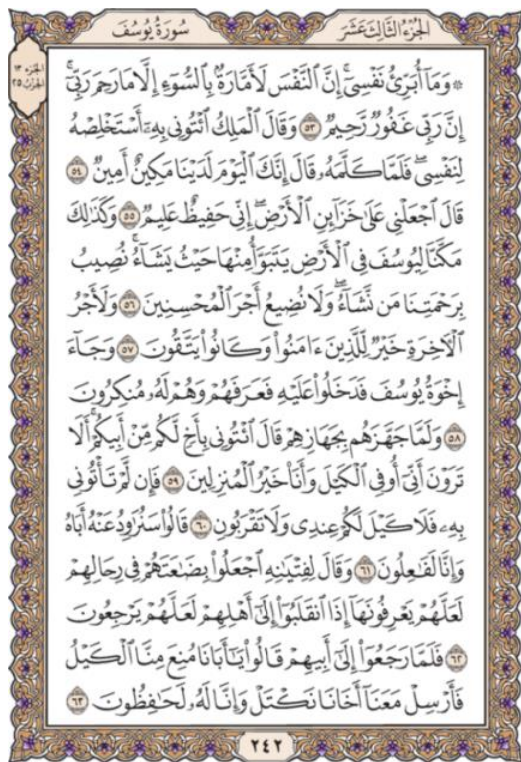 الجزء الثالث عشر
سورة يوسف
الجزء ١٣
الحزب ٢٥
۞ وَمَآ أُبَرِّئُ نَفْسِيٓۚ إِنَّ ٱلنَّفْسَ لَأَمَّارَةُۢ بِٱلسُّوٓءِ إِلَّا مَا رَحِمَ رَبِّيٓۚ
إِنَّ رَبِّي غَفُورٞ رَّحِيمٞ ٥٣ وَقَالَ ٱلْمَلِكُ ٱئْتُونِي بِهِۦٓ أَسْتَخْلِصْهُ
لِنَفْسِيۖ فَلَمَّا كَلَّمَهُۥ قَالَ إِنَّكَ ٱلْيَوْمَ لَدَيْنَا مَكِينٌ أَمِينٞ ٥٤
قَالَ ٱجْعَلْنِي عَلَىٰ خَزَآئِنِ ٱلْأَرْضِۖ إِنِّي حَفِيظٌ عَلِيمٞ ٥٥ وَكَذَٰلِكَ
مَكَّنَّا لِيُوسُفَ فِي ٱلْأَرْضِ يَتَبَوَّأُ مِنْهَا حَيْثُ يَشَآءُۚ نُصِيبُ
بِرَحْمَتِنَا مَن نَّشَآءُۖ وَلَا نُضِيعُ أَجْرَ ٱلْمُحْسِنِينَ ٥٦ وَلَأَجْرُ
ٱلْأٓخِرَةِ خَيْرٞ لِّلَّذِينَ ءَامَنُواْ وَكَانُواْ يَتَّقُونَ ٥٧ وَجَآءَ
إِخْوَةُ يُوسُفَ فَدَخَلُواْ عَلَيْهِ فَعَرَفَهُمْ وَهُمْ لَهُۥ مُنكِرُونَ
٥٨ وَلَمَّا جَهَّزَهُم بِجَهَازِهِمْ قَالَ ٱئْتُونِي بِأَخٖ لَّكُم مِّنْ أَبِيكُمْۚ أَلَا
تَرَوْنَ أَنِّيٓ أُوفِي ٱلْكَيْلَ وَأَنَا۠ خَيْرُ ٱلْمُنزِلِينَ ٥٩ فَإِن لَّمْ تَأْتُونِي
بِهِۦ فَلَا كَيْلَ لَكُمْ عِندِي وَلَا تَقْرَبُونِ ٦٠ قَالُواْ سَنُرَٰوِدُ عَنْهُ أَبَاهُ
وَإِنَّا لَفَٰعِلُونَ ٦١ وَقَالَ لِفِتْيَٰنِهِ ٱجْعَلُواْ بِضَٰعَتَهُمْ فِي رِحَالِهِمْ
لَعَلَّهُمْ يَعْرِفُونَهَآ إِذَا ٱنقَلَبُوٓاْ إِلَىٰٓ أَهْلِهِمْ لَعَلَّهُمْ يَرْجِعُونَ
٦٢ فَلَمَّا رَجَعُوٓاْ إِلَىٰٓ أَبِيهِمْ قَالُواْ يَٰٓأَبَانَا مُنِعَ مِنَّا ٱلْكَيْلُ
فَأَرْسِلْ مَعَنَآ أَخَانَا نَكْتَلْ وَإِنَّا لَهُۥ لَحَٰفِظُونَ ٦٣
٢٤٢